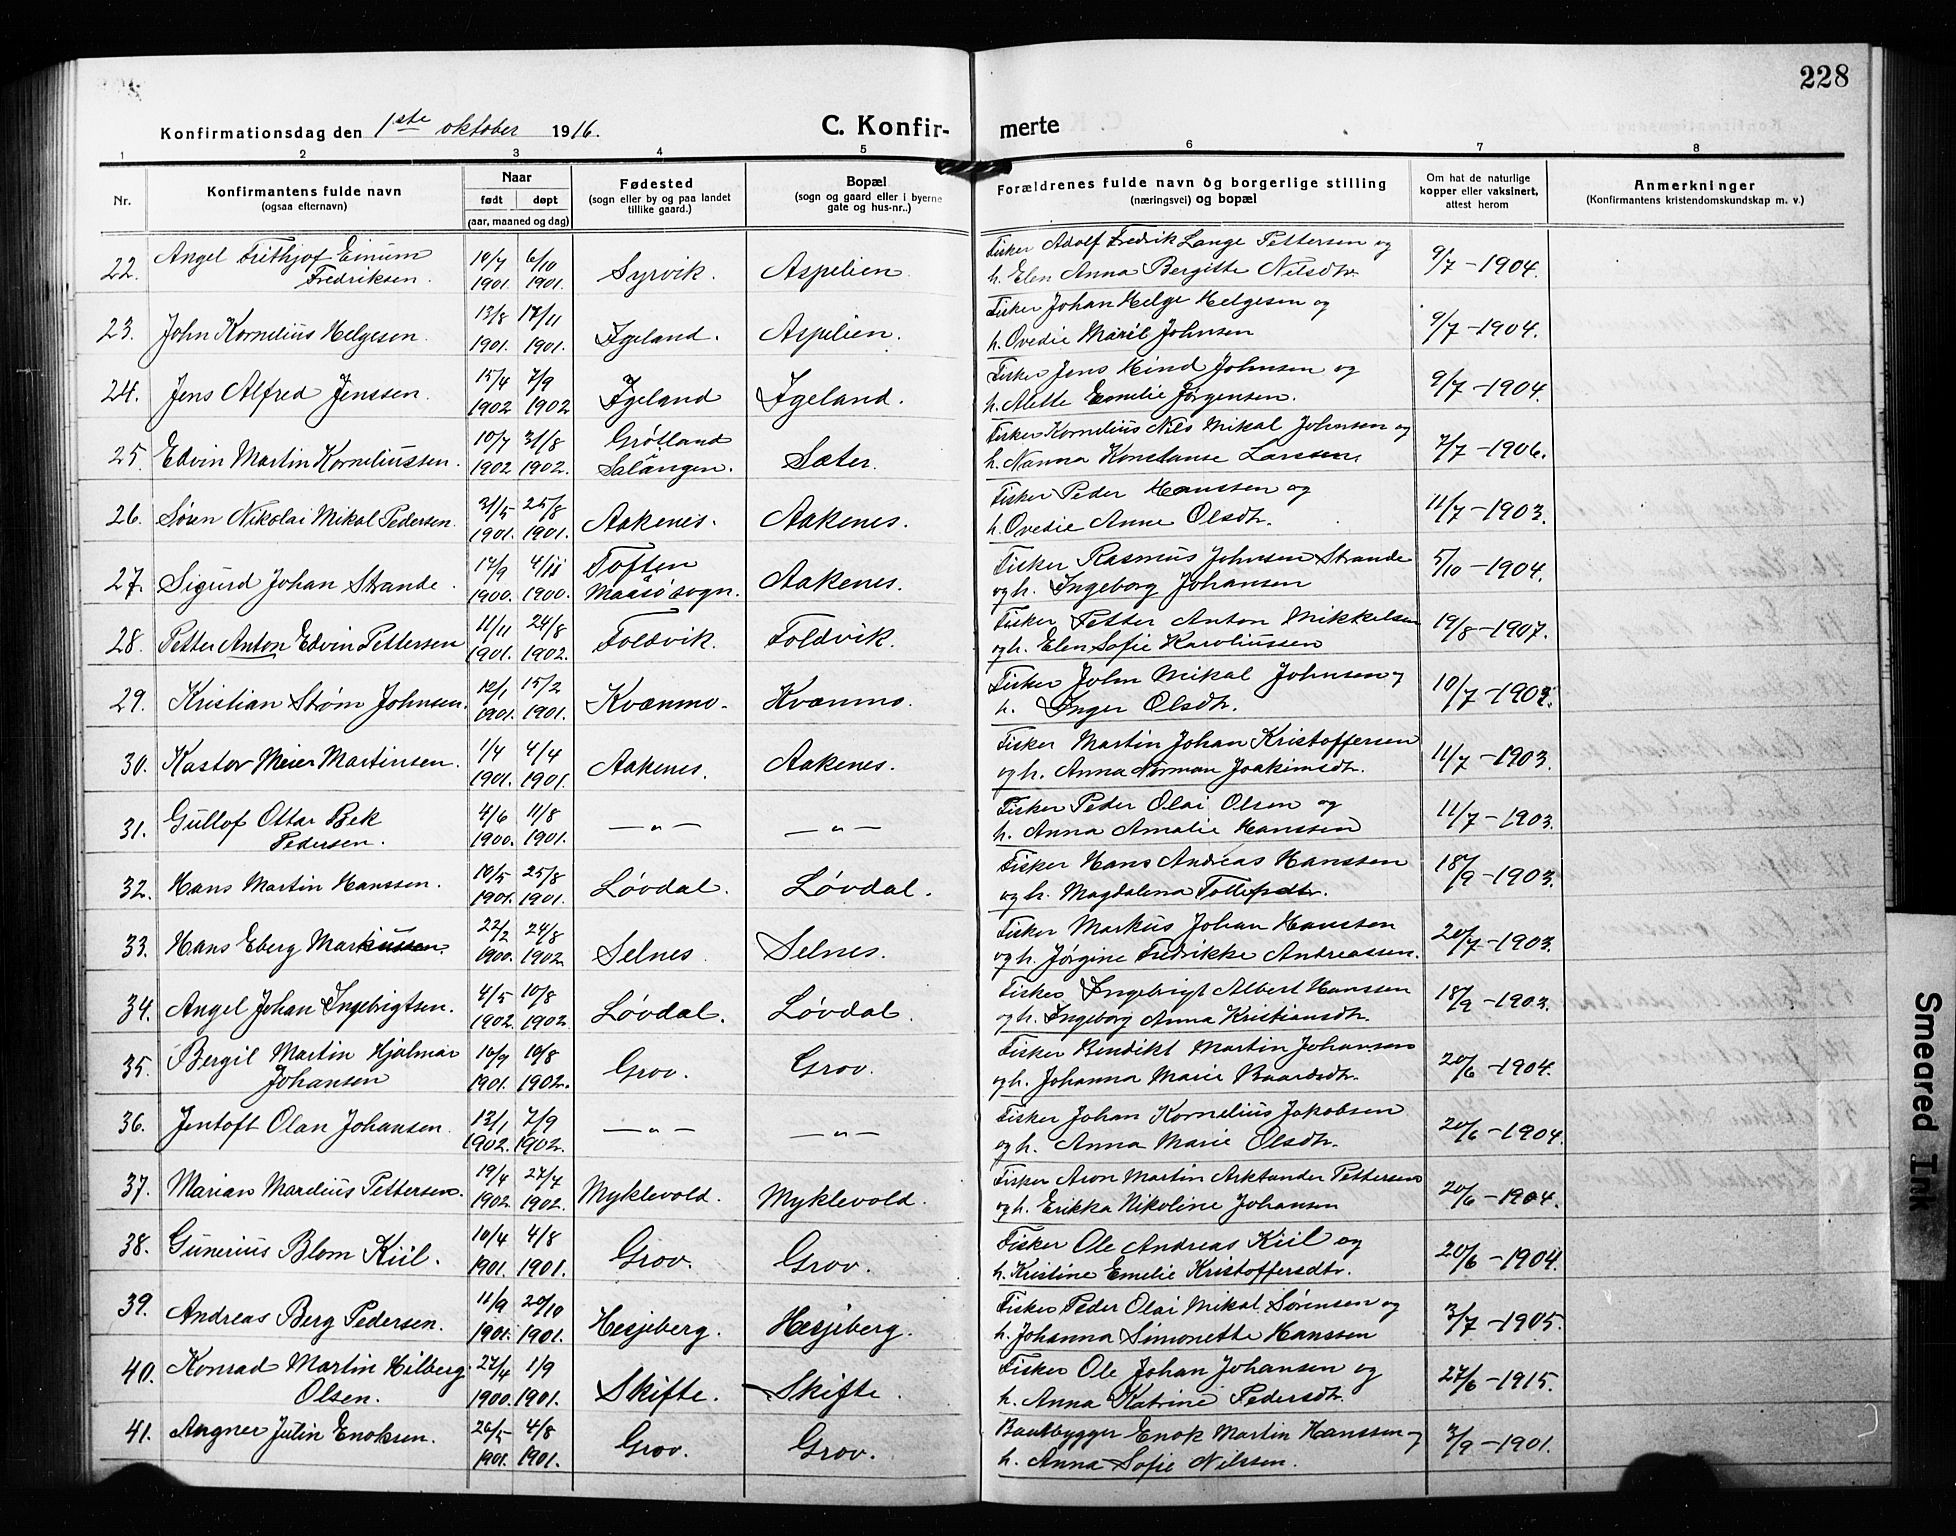 228
Konfirmationsdag den 1ste oktober 1916.
C. Konfirmerte
1 2 3 4 5 6 7 8
Nr. Konfirmantens fulde navn (ogsaa efternavn) Naar født døpt (aar, maaned og dag) Fødested (sogn eller by og paa landet tillike gaard.) Bopæl (sogn og gaard eller i byerne gate og hus-nr..) Forældrenes fulde navn og borgerlige stilling (næringsvei) og bopæl Om hat de naturlige kopper eller vaksinert, attest herom Anmerkninger (Konfirmantens kristendomskundskap m. v.)
22. Angel Frithjof Einum Fredriksen. 10/7 1901. 6/10 1901. Syrvik. Aspelien. Fisker Adolf Fredrik Lange Pettersen og h. Elen Anna Bergitte Nilsdtr. 9/7 - 1904.
23. John Kornelius Helgesen. 13/8 1901. 17/11 1901. Igeland. Aspelien. Fisker Johan Helge Helgesen og h. Ovedie Marél Johnsen 9/7 - 1904.
24. Jens Alfred Jenssen. 15/4 1902 7/9 1902 Igeland Igeland. Fisker Jens Hind Johnsen og h. Alette Emelie Jørgensen. 9/7 - 1904.
25. Edvin Martin Korneliussen. 10/7 1902 31/8 1902. Grøtland Salangen. Sæter. Fisker Kornelius Nils Mikal Johnsen og h. Nanna Konstanse Larssen. 7/7 - 1906.
26. Søren Nikolai Mikal Pedersen. 31/5 1901. 25/8 1901. Aakenes. Aakenes. Fisker Peder Hanssen og h. Ovedie Anne Olsdtr. 11/7 - 1903.
27. Sigurd Johan Strande. 17/9 1900. 4/11 1900. Toften Maasø sogn. Aakenes. Fisker Rasmus Johnsen Strande og h. Ingeborg Johansen 5/10 - 1904.
28. Petter Anton Edvin Pettersen 11/11 1901. 24/8 1902. Foldvik. Foldvik. Fisker Petter Anton Mikkelsen og h. Elen Sofie Karoliussen 19/8 - 1907.
29. Kristian Strøm Johnsen. 12/1 1901. 15/2 1901. Kvænmo. Kvænmo. Fisker John Mikal Johnsen og h. Inger Olsdtr. 10/7 -
30. Kastor Meier Martinsen. 1/4 1901. 4/4 1901. Aakenes. Aakenes. Fisker Martin Johan Kristoffersen og h. Anna Norman Joakimsdtr. 11/7 - 1903.
31. Gullof Ottar Bek Pedersen. 4/6 1900. 11/8 1901. — „ — — „ — Fisker Peder Olai Olsen og h. Anna Amalie Hanssen 11/7 - 1903.
32. Hans Martin Hanssen. 10/5 1901. 25/8 1901. Løvdal. Løvdal. Fisker Hans Andreas Hanssen og h. Magdalena Tollefsdtr. 18/9 - 1903.
33. Hans Eberg Markussen. 22/2 1900. 24/8 1902. Selnes. Selnes. Fisker Markus Johan Hanssen og h. Jørgine Fredrikke Andreassen. 20/7 - 1903.
34. Angel Johan Ingebrigtsen. 4/5 1902. 10/8 1902. Løvdal. Løvdal. Fisker Ingebrigt Albert Hanssen og h. Ingeborg Anna Kristiansdtr. 18/9 - 1903.
35. Bergil Martin Hjalmar Johansen 10/9 1901. 10/8 1902. Grov. Grov. Fisker Bendikt Martin Johansen og h. Johanna Marie Baardsdtr. 20/6 - 1904.
36. Jentoft Olan Johansen. 13/1 1902. 7/9 1902. — „ — — „ — Fisker Johan Kornelius Jakobsen og h. Anna Marie Olsdtr. 20/6 - 1904.
37. Marian Mardius Pettersen. 19/4 1902. 27/4 1902. Myklevold. Myklevold. Fisker Aron Martin Arktander Pettersen og h. Erikka Nikoline Johansen 20/6 - 1904.
38. Gunerius Blom Kiil. 10/4 1901. 4/8 1901. Grov. Grov. Fisker Ole Andreas Kiil og h. Kristine Emelie Kristoffersdtr. 20/6 - 1904.
39. Andreas Berg Pedersen. 11/9 1901. 20/10 1901. Hesjeberg. Hesjeberg. Fisker Peder Olai Mikal Sørensen og h. Johanna Simonette Hanssen 3/7 - 1905.
40. Konrad Martin Hilberg Olsen. 27/4 1900. 1/9 1901. Skifte. Skifte. Fisker Ole Johan Johansen og h. Anna Katrine Pedersdtr. 27/6 - 1915.
41. Angner Julin Enoksen. 26/5 1901. 4/8 1901. Grov. Grov. Baatbygger Enok Martin Hanssen og h. Anna Sofie Nilssen. 3/9 - 1901.
Smeared Ink